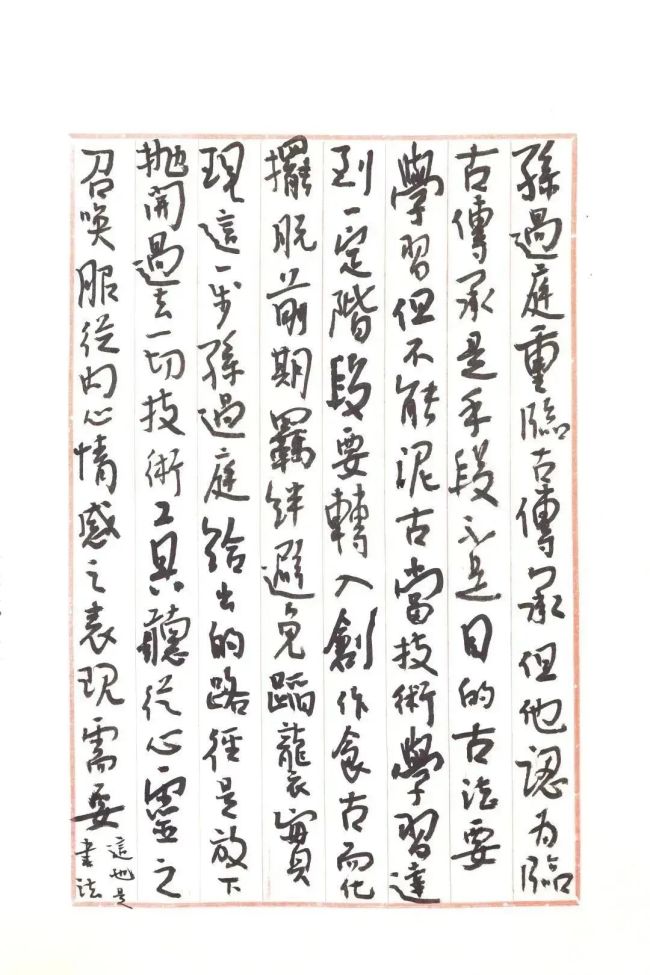 孫過庭重臨古傳承但他認为臨
古傳承是手段不是目的古法要
學習但不能泥古當技術學習達
到一定階段要轉入創作食古而化
擺脫前期羈絆避免蹈襲實
現這一步孫過庭给出的路徑是放下
抛開過去一切技術工具聽從心靈之
召唤服從内心情感之表現需要
這也是
書法